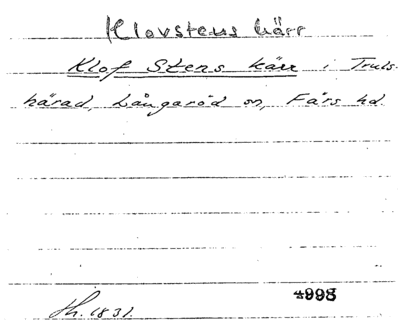 Klovstens kärr
Klof Stens kärr i Truls-
härad, Långaröd sn, Färs hd.
Sk. 1831.
4998